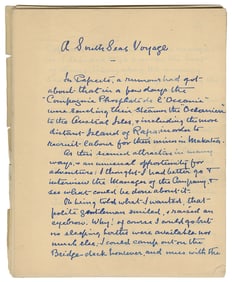 A South Seas Voyage
In Papeete, a rumour had got
about that in a few days the
"Compagnie Phosphate de l'Oceanie"
were sending their Steamer the Oceanien
to the Austral Isles & including the more
distant Island of Rapa in order to
recruit labour for their mines in Makatea.
As this seemed attractive in many
ways, & an unusual opportunity for
adventure; I thought I had better go &
interview the Manager of the Company, &
see what could be done about it.
On being told what I wanted, that
polite gentleman smiled, & raised an
eyebrow. Why! of course I could go but
no sleeping berths were available nor
much else, I could camp out on the
Bridge-deck however, and mess with the